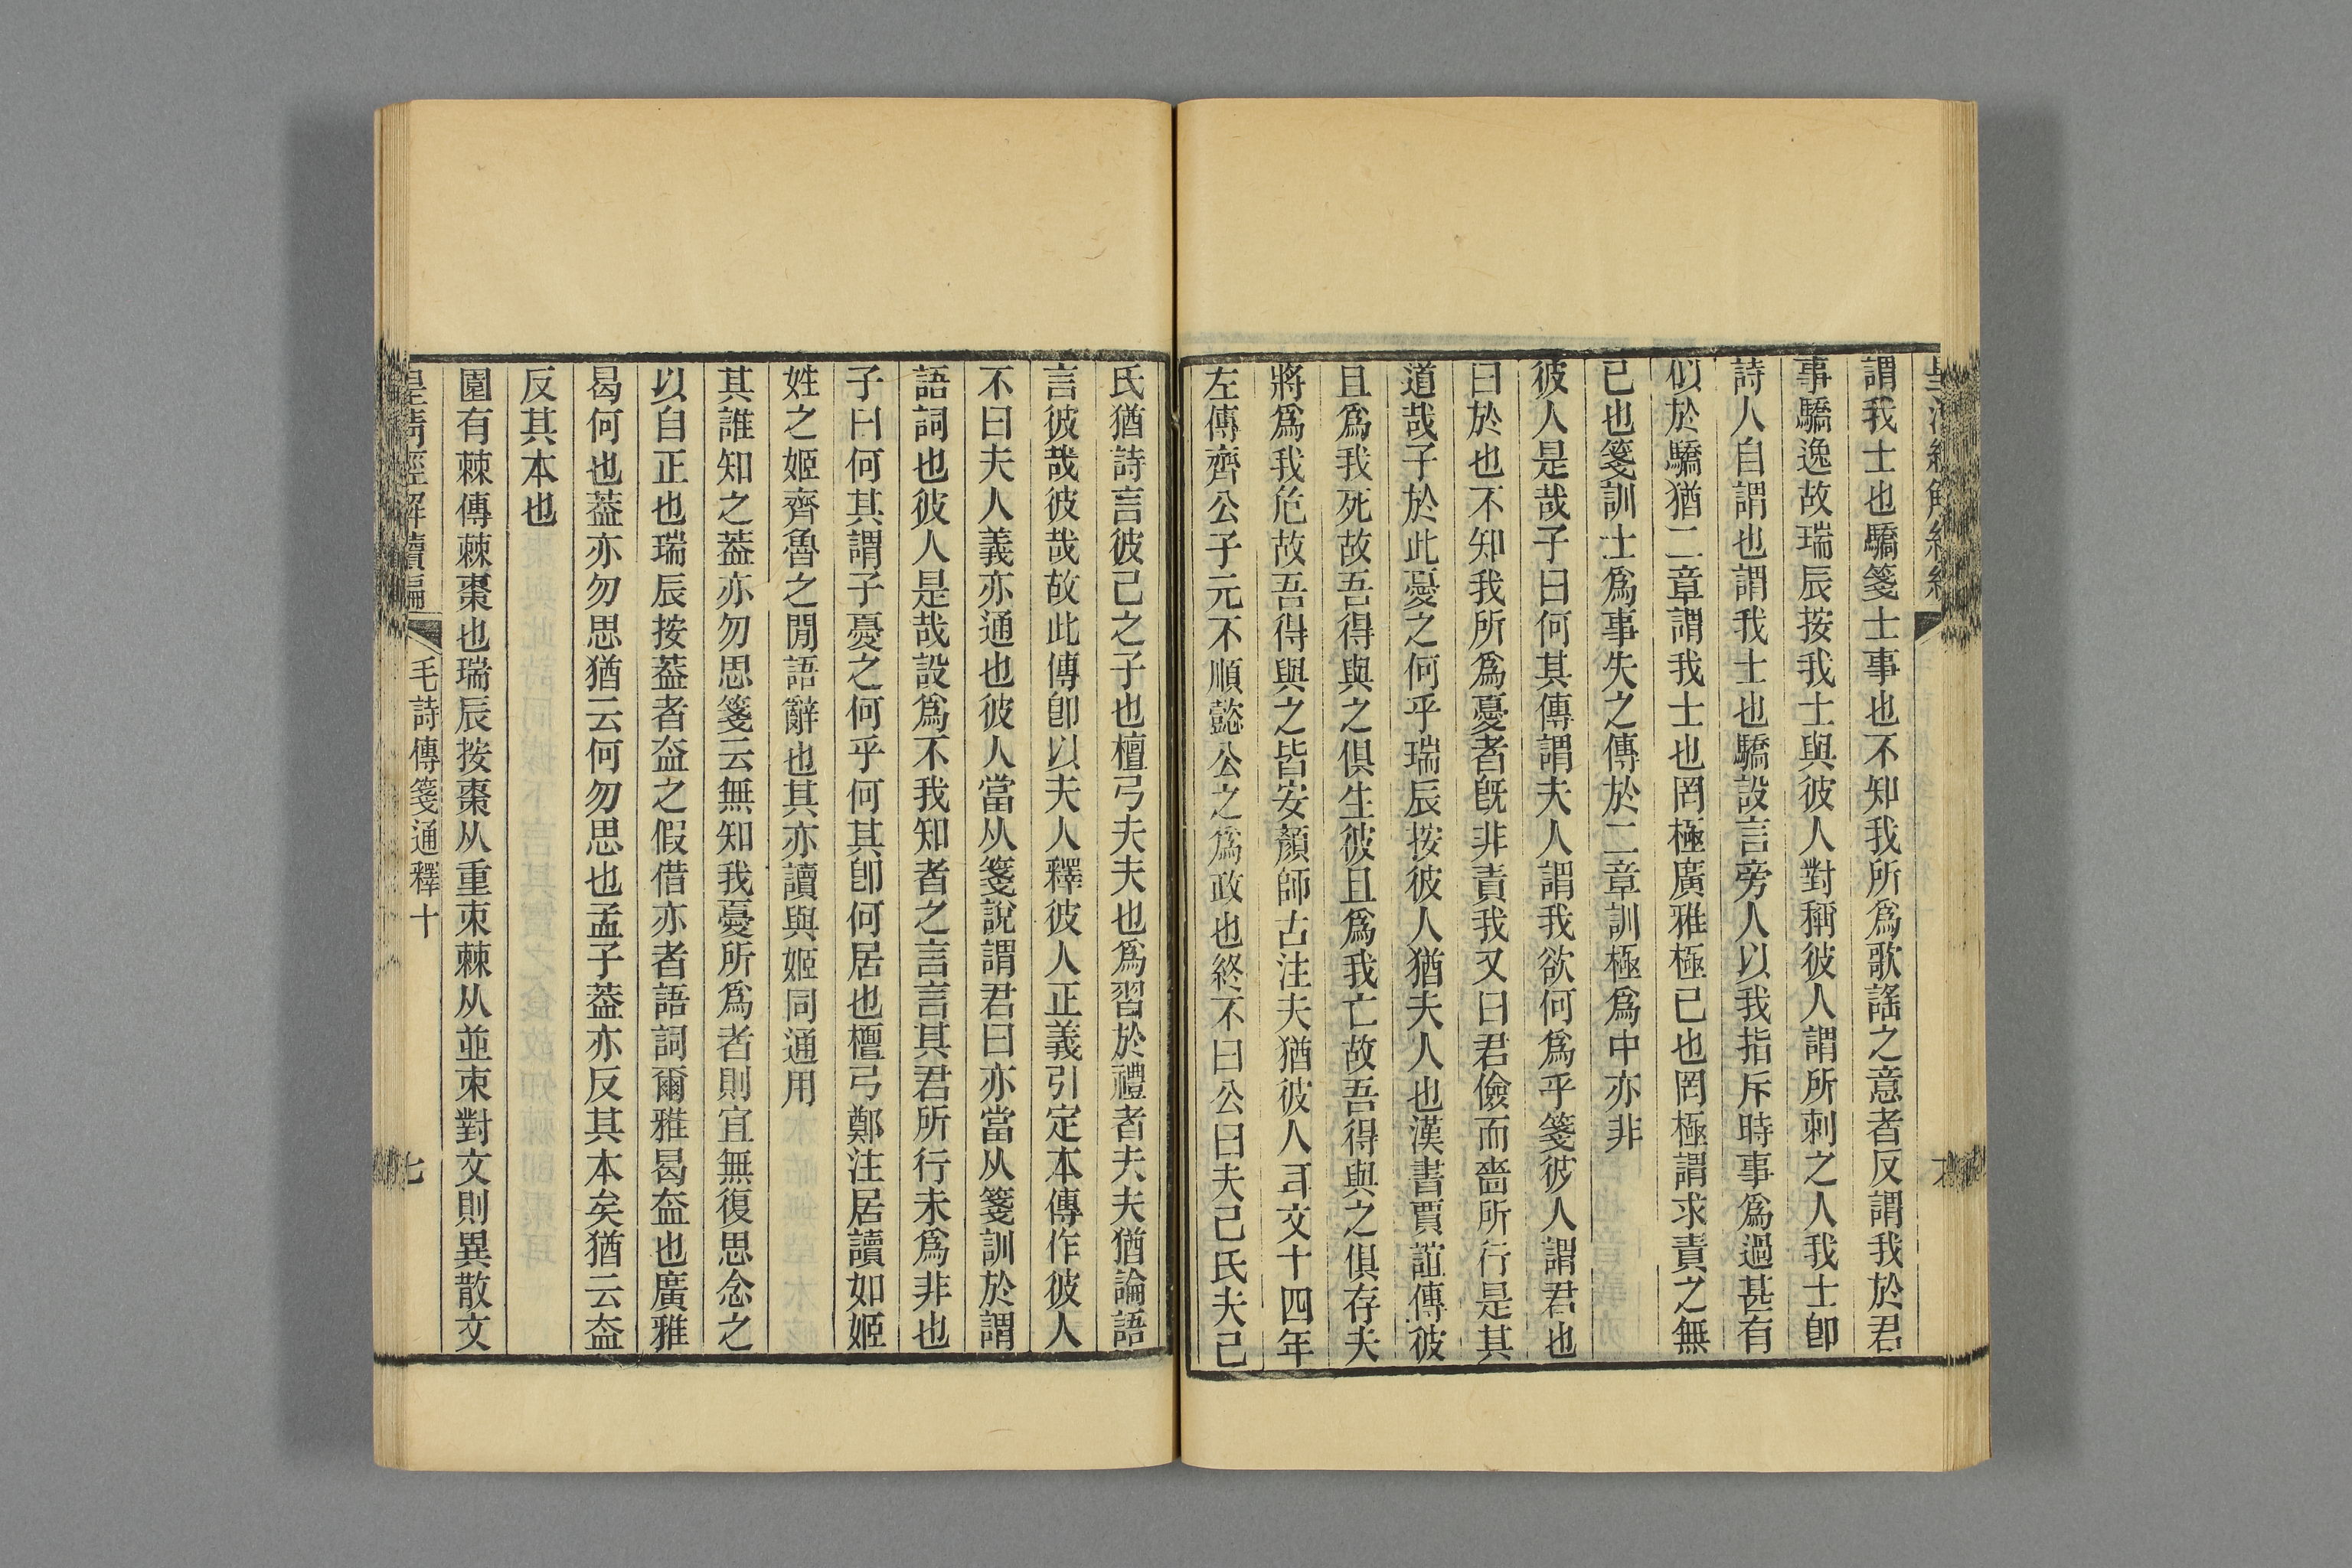 謂我士也驕箋士事也不知我所爲歌謠之意者反謂我於君
事驕逸故瑞辰按我士與彼人對稱彼人謂所刺之人我士卽
詩人自謂也謂我士也驕設言旁人以我指斥時事爲過甚有
似於驕猶二章謂我士也罔極廣雅極已也罔極謂求責之無
已也箋訓士爲事失之傳於二章訓極爲中亦非
彼人是哉子曰何其傳謂夫人謂我欲何爲乎箋彼人謂君也
曰於也不知我所爲憂者旣非責我又曰君儉而嗇所行是其
道哉子於此憂之何乎瑞辰按彼人猶夫人也漢書賈誼傳彼
且爲我死故吾得與之俱生彼且爲我亡故吾得與之俱存夫
將爲我危故吾得與之皆安顏師古注夫猶彼人耳文十四年
左傳齊公子元不順懿公之爲政也終不曰公曰夫己氏夫己
氏猶詩言彼己之子也檀弓夫夫也爲習於禮者夫夫猶論語
言彼哉彼哉故此傳卽以夫人釋彼人正義引定本傳作彼人
不曰夫人義亦通也彼人當从箋說謂君曰亦當从箋訓於謂
語詞也彼人是哉設爲不我知者之言言其君所行未爲非也
子曰何其謂子憂之何乎何其卽何居也檀弓鄭注居讀如姬
姓之姬齊魯之閒語辭也其亦讀與姬同通用
其誰知之葢亦勿思箋云無知我憂所爲者則宜無復思念之
以自正也瑞辰按葢者盍之假借亦者語詞爾雅曷盍也廣雅
曷何也葢亦勿思猶云何勿思也孟子葢亦反其本矣猶云盍
反其本也
園有棘傳棘棗也瑞辰按棗从重朿棘从並朿對文則異散文
皇清經解續編 毛詩傳箋通釋十 七